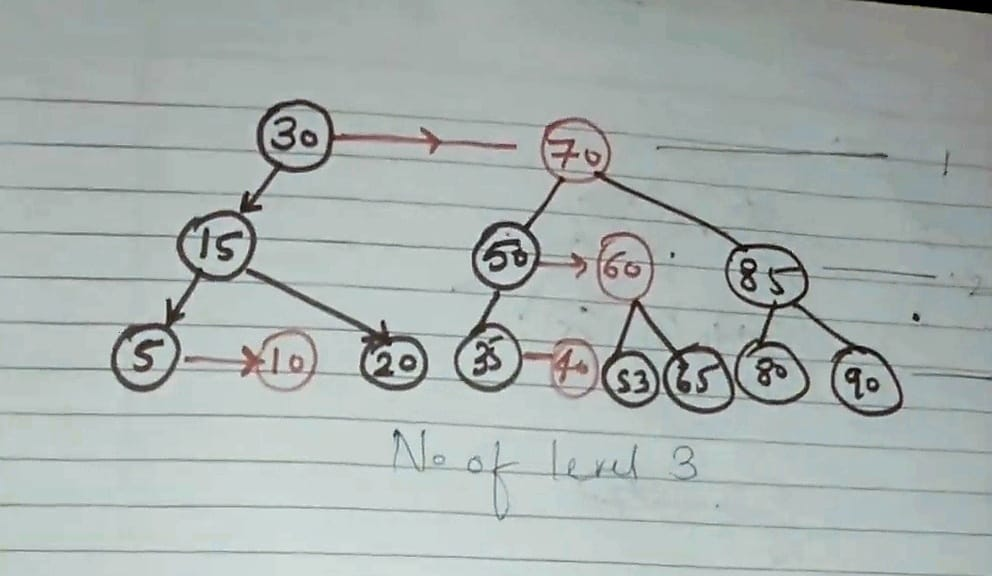 30 70 1
15 50 60 85 2
5 10 20 35 40 53 65 80 90
No of level 3